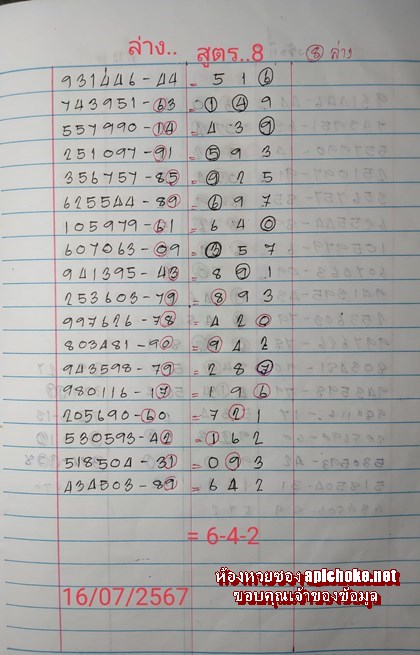 ล่าง.. สูตร..8 ⑧ ล่าง
931446-44 = 5 1 6
743951-63 = 1 4 9
557990-14 = 4 3 9
251097-91 = 5 9 3
356757-85 = 9 2 5
625544-89 = 6 9 7
105979-61 = 6 4 0
607063-09 = 3 5 7
941395-43 = 8 9 1
253603-79 = 8 9 3
997626-78 = 4 2 0
803481-90 = 9 4 2
943598-79 = 2 8 7
980116-17 = 1 9 6
205690-60 = 7 2 1
530593-42 = 1 6 2
518504-31 = 0 9 3
434503-89 = 6 4 2
= 6-4-2
ห้องหวยซอง apichoke.net
16/07/2567 ขอบคุณเจ้าของข้อมูล